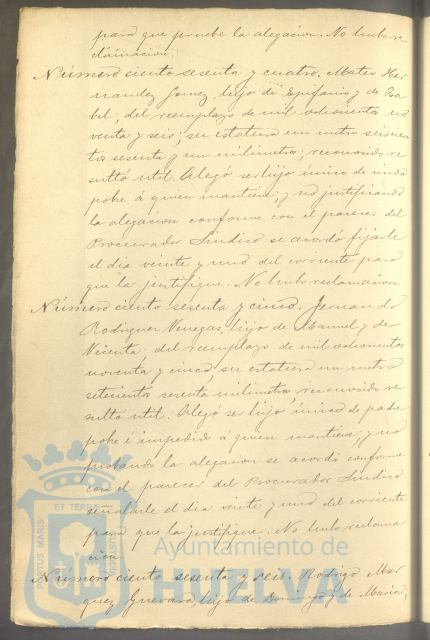 para que pruebe la alegación. No hubo re
clamación.
Número ciento sesenta y cuatro. Mateo Her
nandez Gomez, hijo de Epifanio y de Isa
bel, del reemplazo de mil ochocientos no
venta y seis; su estatura un metro seiscien
tos sesenta y un milimetros; reconocido re
sultó util. Alegó ser hijo único de viuda
pobre á quien mantiene; y no justificando
la alegacion conforme con el parecer del
Procurador Sindico se acordó fijarle
el dia veinte y uno del corriente para
que la justifique. No hubo reclamacion.
Número ciento sesenta y cinco. Fernando
Rodriguez Venegas, hijo de Manuel y de
Vicenta, del reemplazo de mil ochocientos
noventa y cinco, su estatura un metro
setecientos sesenta milimetros, reconocido re
sultó util. Alegó ser hijo único de padre
pobre é impedido á quien mantiene; y no
probando la alegacion se acordó conforme
con el parecer del Procurador Sindico
señalarle el dia veinte y uno del corriente
para que la justifique. No hubo reclama
ción.
Número ciento sesenta y seis. Rodrigo Mar
quez Guevara, hijo de Domingo y de Maria;
PORTUS MARIS ET TERRE CUSTODIA
Ayuntamiento de
HUELVA